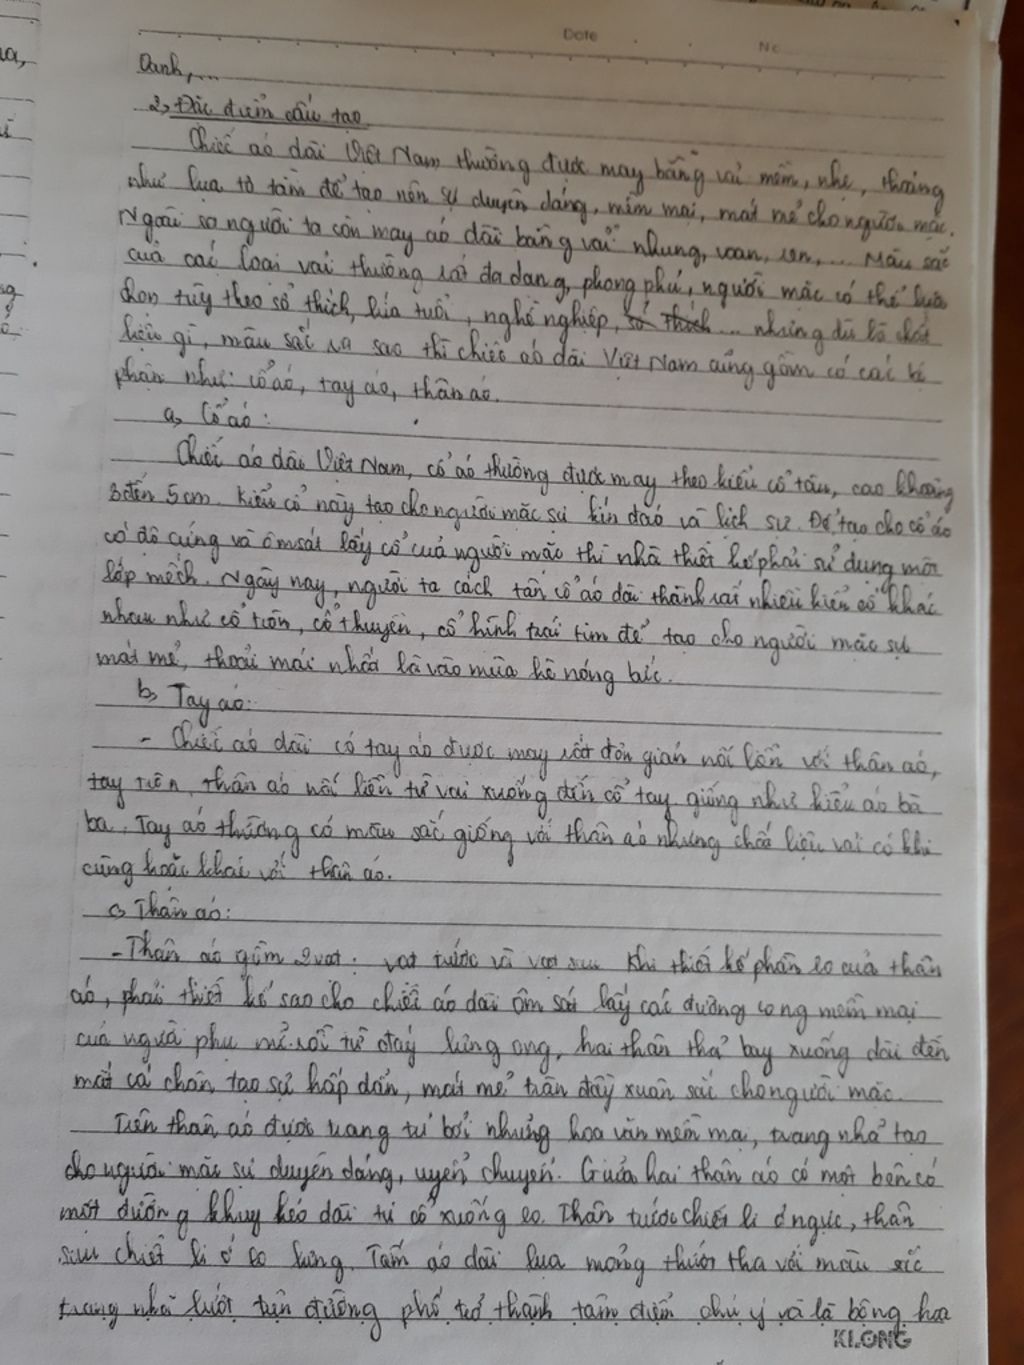 Date No
Oanh,...
2, Đặc điểm cấu tạo
Chiếc áo dài Việt Nam thường được may bằng vải mềm, nhẹ, thoáng
như lụa tơ tằm để tạo nên sự duyên dáng, mềm mại, mát mẻ cho người mặc.
Ngoài ra người ta còn may áo dài bằng vải nhung, voan, ren,... Màu sắc
của các loại vải thường rất đa dạng, phong phú, người mặc có thể lựa
chọn tùy theo sở thích, lứa tuổi, nghề nghiệp, sở thích... nhưng dù là chất
liệu gì, màu sắc ra sao thì chiếc áo dài Việt Nam cũng gồm có các bộ
phận như: cổ áo, tay áo, thân áo.
a, Cổ áo:
Chiếc áo dài Việt Nam, cổ áo thường được may theo kiểu cổ tàu, cao khoảng
3 đến 5 cm. Kiểu cổ này tạo cho người mặc sự kín đáo và lịch sự. Để tạo cho cổ áo
có độ cứng và ôm sát lấy cổ của người mặc thì nhà thiết kế phải sử dụng một
lớp mếch. Ngày nay, người ta cách tân cổ áo dài thành rất nhiều kiểu cổ khác
nhau như cổ tròn, cổ thuyền, cổ hình trái tim để tạo cho người mặc sự
mát mẻ, thoải mái nhất là vào mùa hè nóng bức.
b, Tay áo:
- Chiếc áo dài có tay áo được may rất đơn giản nối liền với thân áo,
tay trên thân áo nối liền từ vai xuống đến cổ tay giống như kiểu áo bà
ba. Tay áo thường có màu sắc giống với thân áo nhưng chất liệu vải có khi
cùng hoặc khác với thân áo.
c, Thân áo:
- Thân áo gồm 2 vạt: vạt trước và vạt sau Khi thiết kế phần eo của thân
áo, phải thiết kế sao cho chiếc áo dài ôm sát lấy các đường cong mềm mại
của người phụ nữ rồi từ đáy lưng ong, hai thân thả bay xuống dài đến
mắt cá chân tạo sự hấp dẫn, mát mẻ tràn đầy xuân sắc cho người mặc.
Trên thân áo được trang trí bởi những hoa văn mềm mại, trang nhã tạo
cho người mặc sự duyên dáng, uyển chuyển. Giữa hai thân áo có một bên có
một đường khuy kéo dài từ cổ xuống eo. Thân trước chiết li ở ngực, thân
sau chiết li ở eo lưng. Tấm áo dài lụa mỏng thướt tha với màu sắc
trang nhã lướt trên đường phố trở thành tâm điểm chú ý và là bông hoa
KLONG